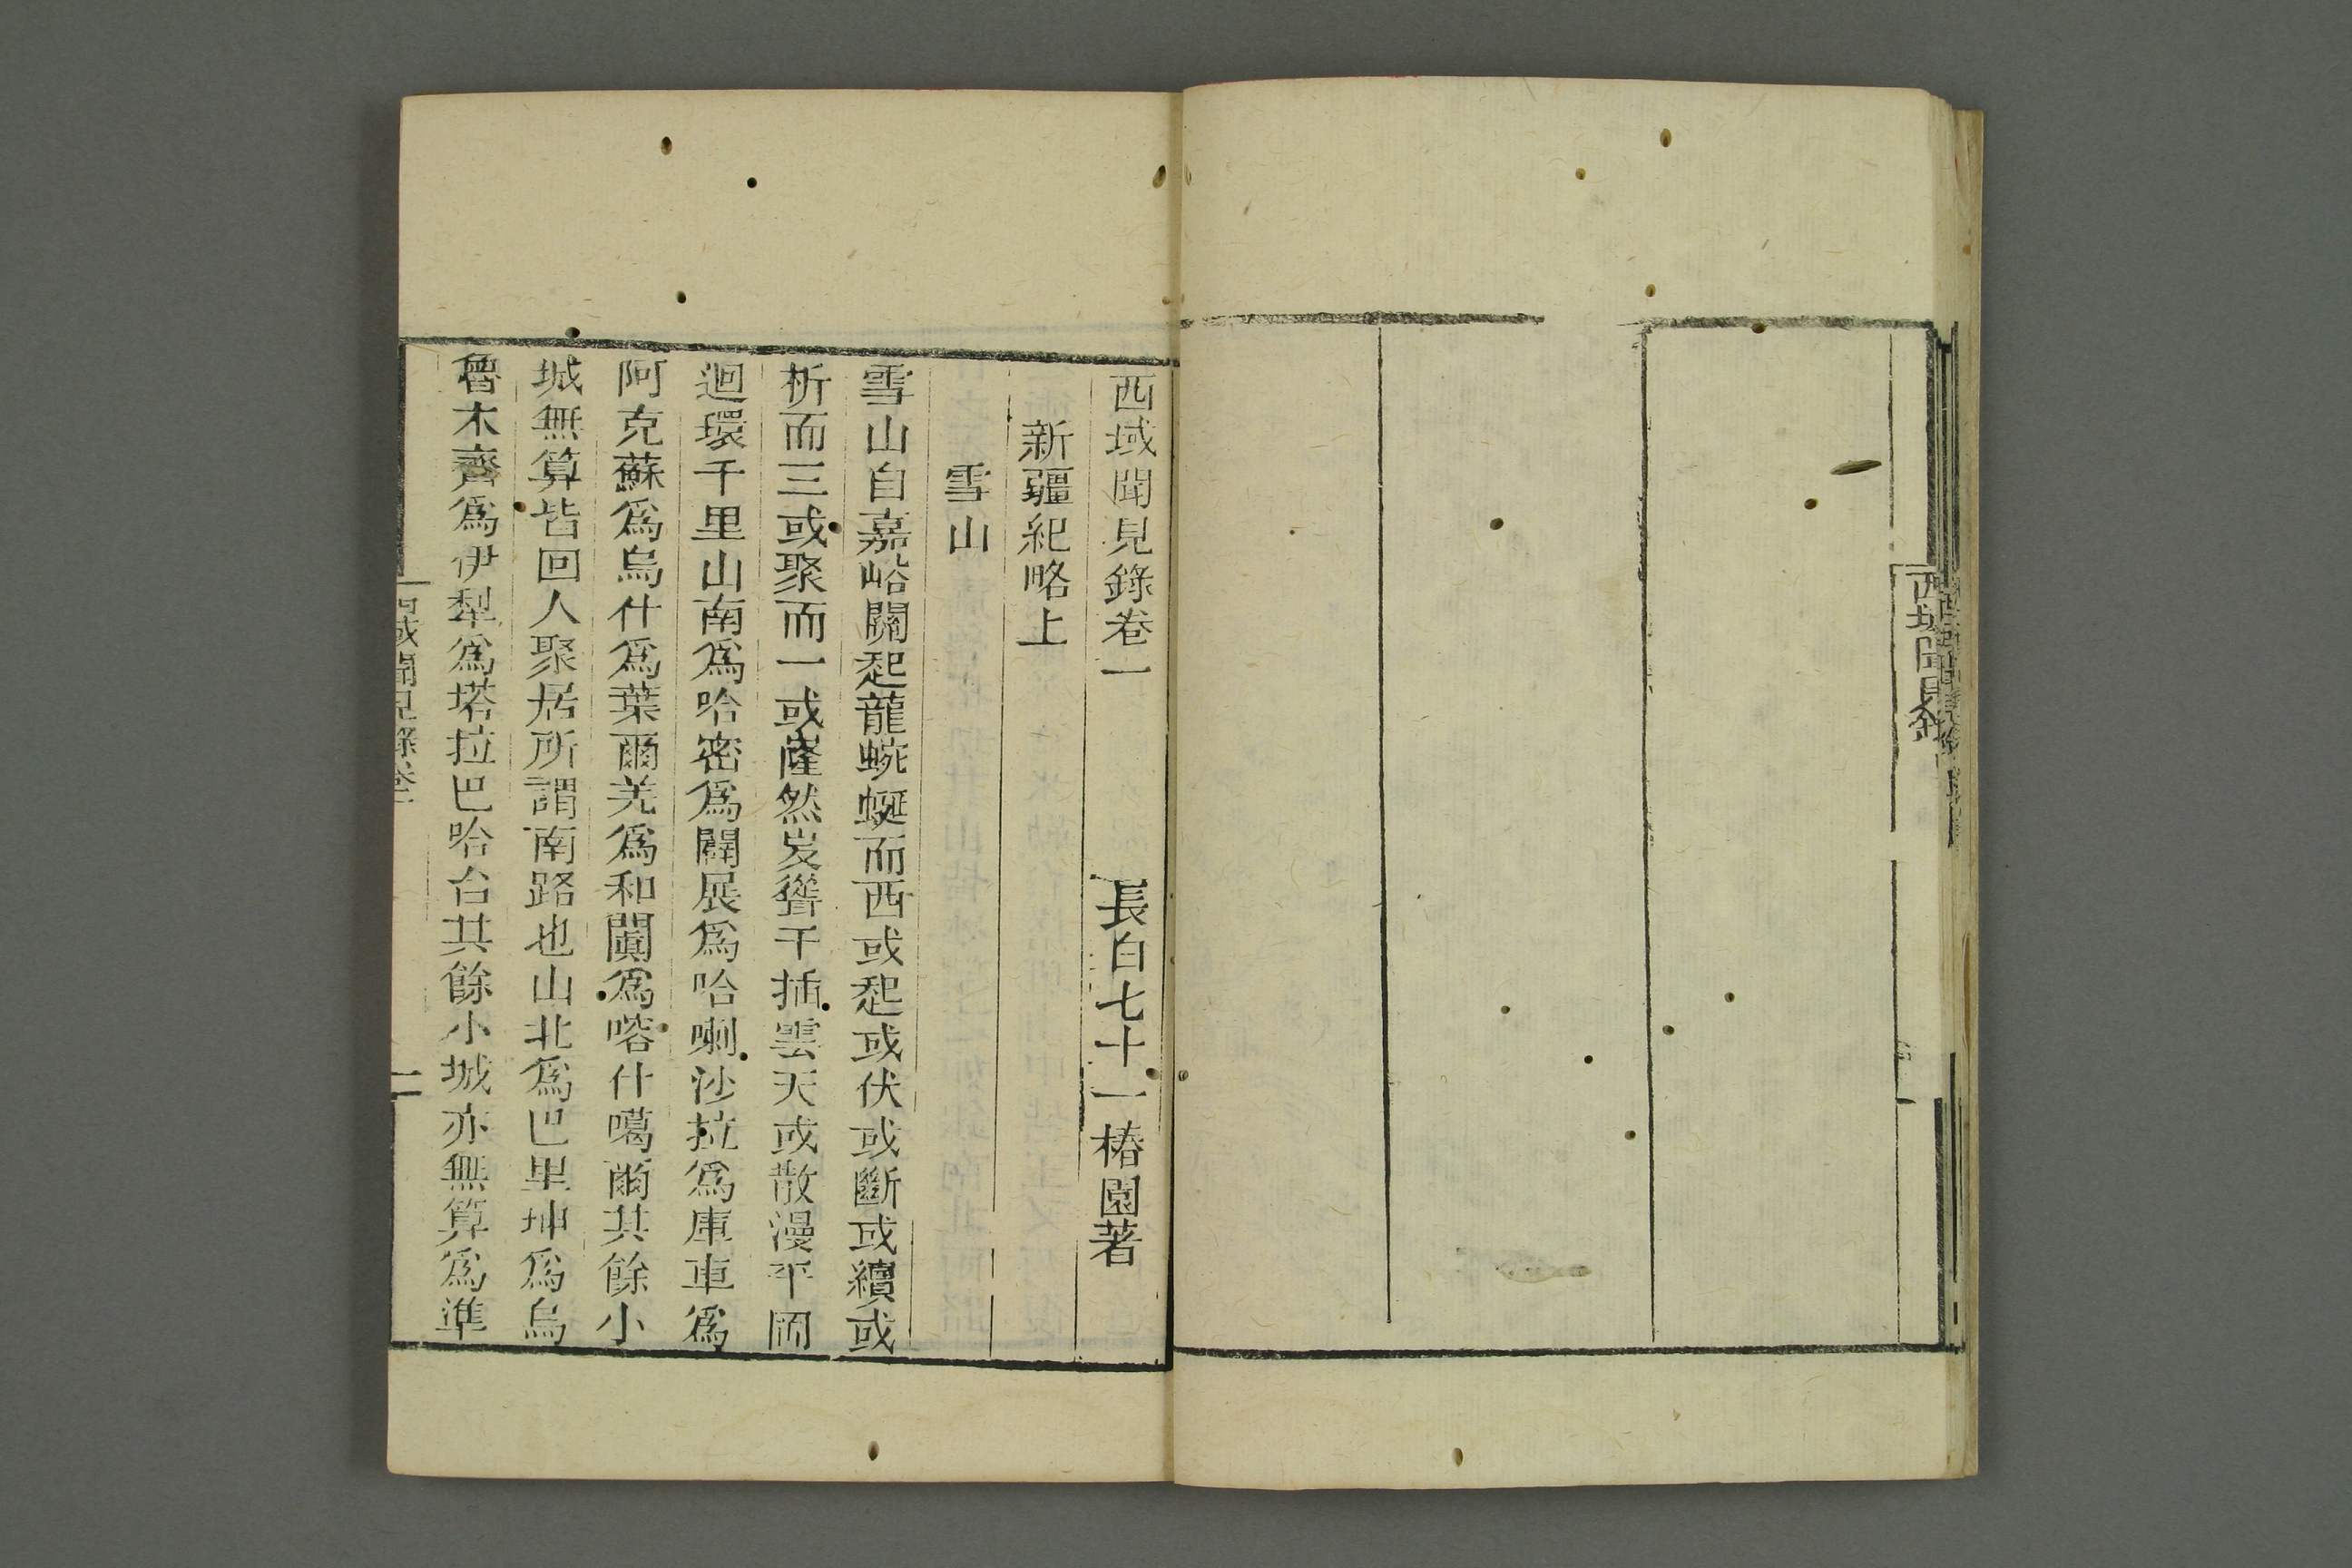 西域聞見錄
西域聞見錄卷一　長白七十一椿園著
新疆紀略上
雪山
雪山自嘉峪關起龍蜿蜒而西或起或伏或斷或續或
析而三或聚而一或窿然岌聳千插雲天或散漫平岡
迴環千里山南為哈密為闢展為哈喇沙拉為庫車為
阿克蘇為烏什為葉爾羌為和闐為喀什噶爾其餘小
城無算皆回人聚居所謂南路也山北為巴里坤為烏
魯木齊為伊犁為塔拉巴哈台其餘小城亦無算為準
西域聞見錄卷一
一